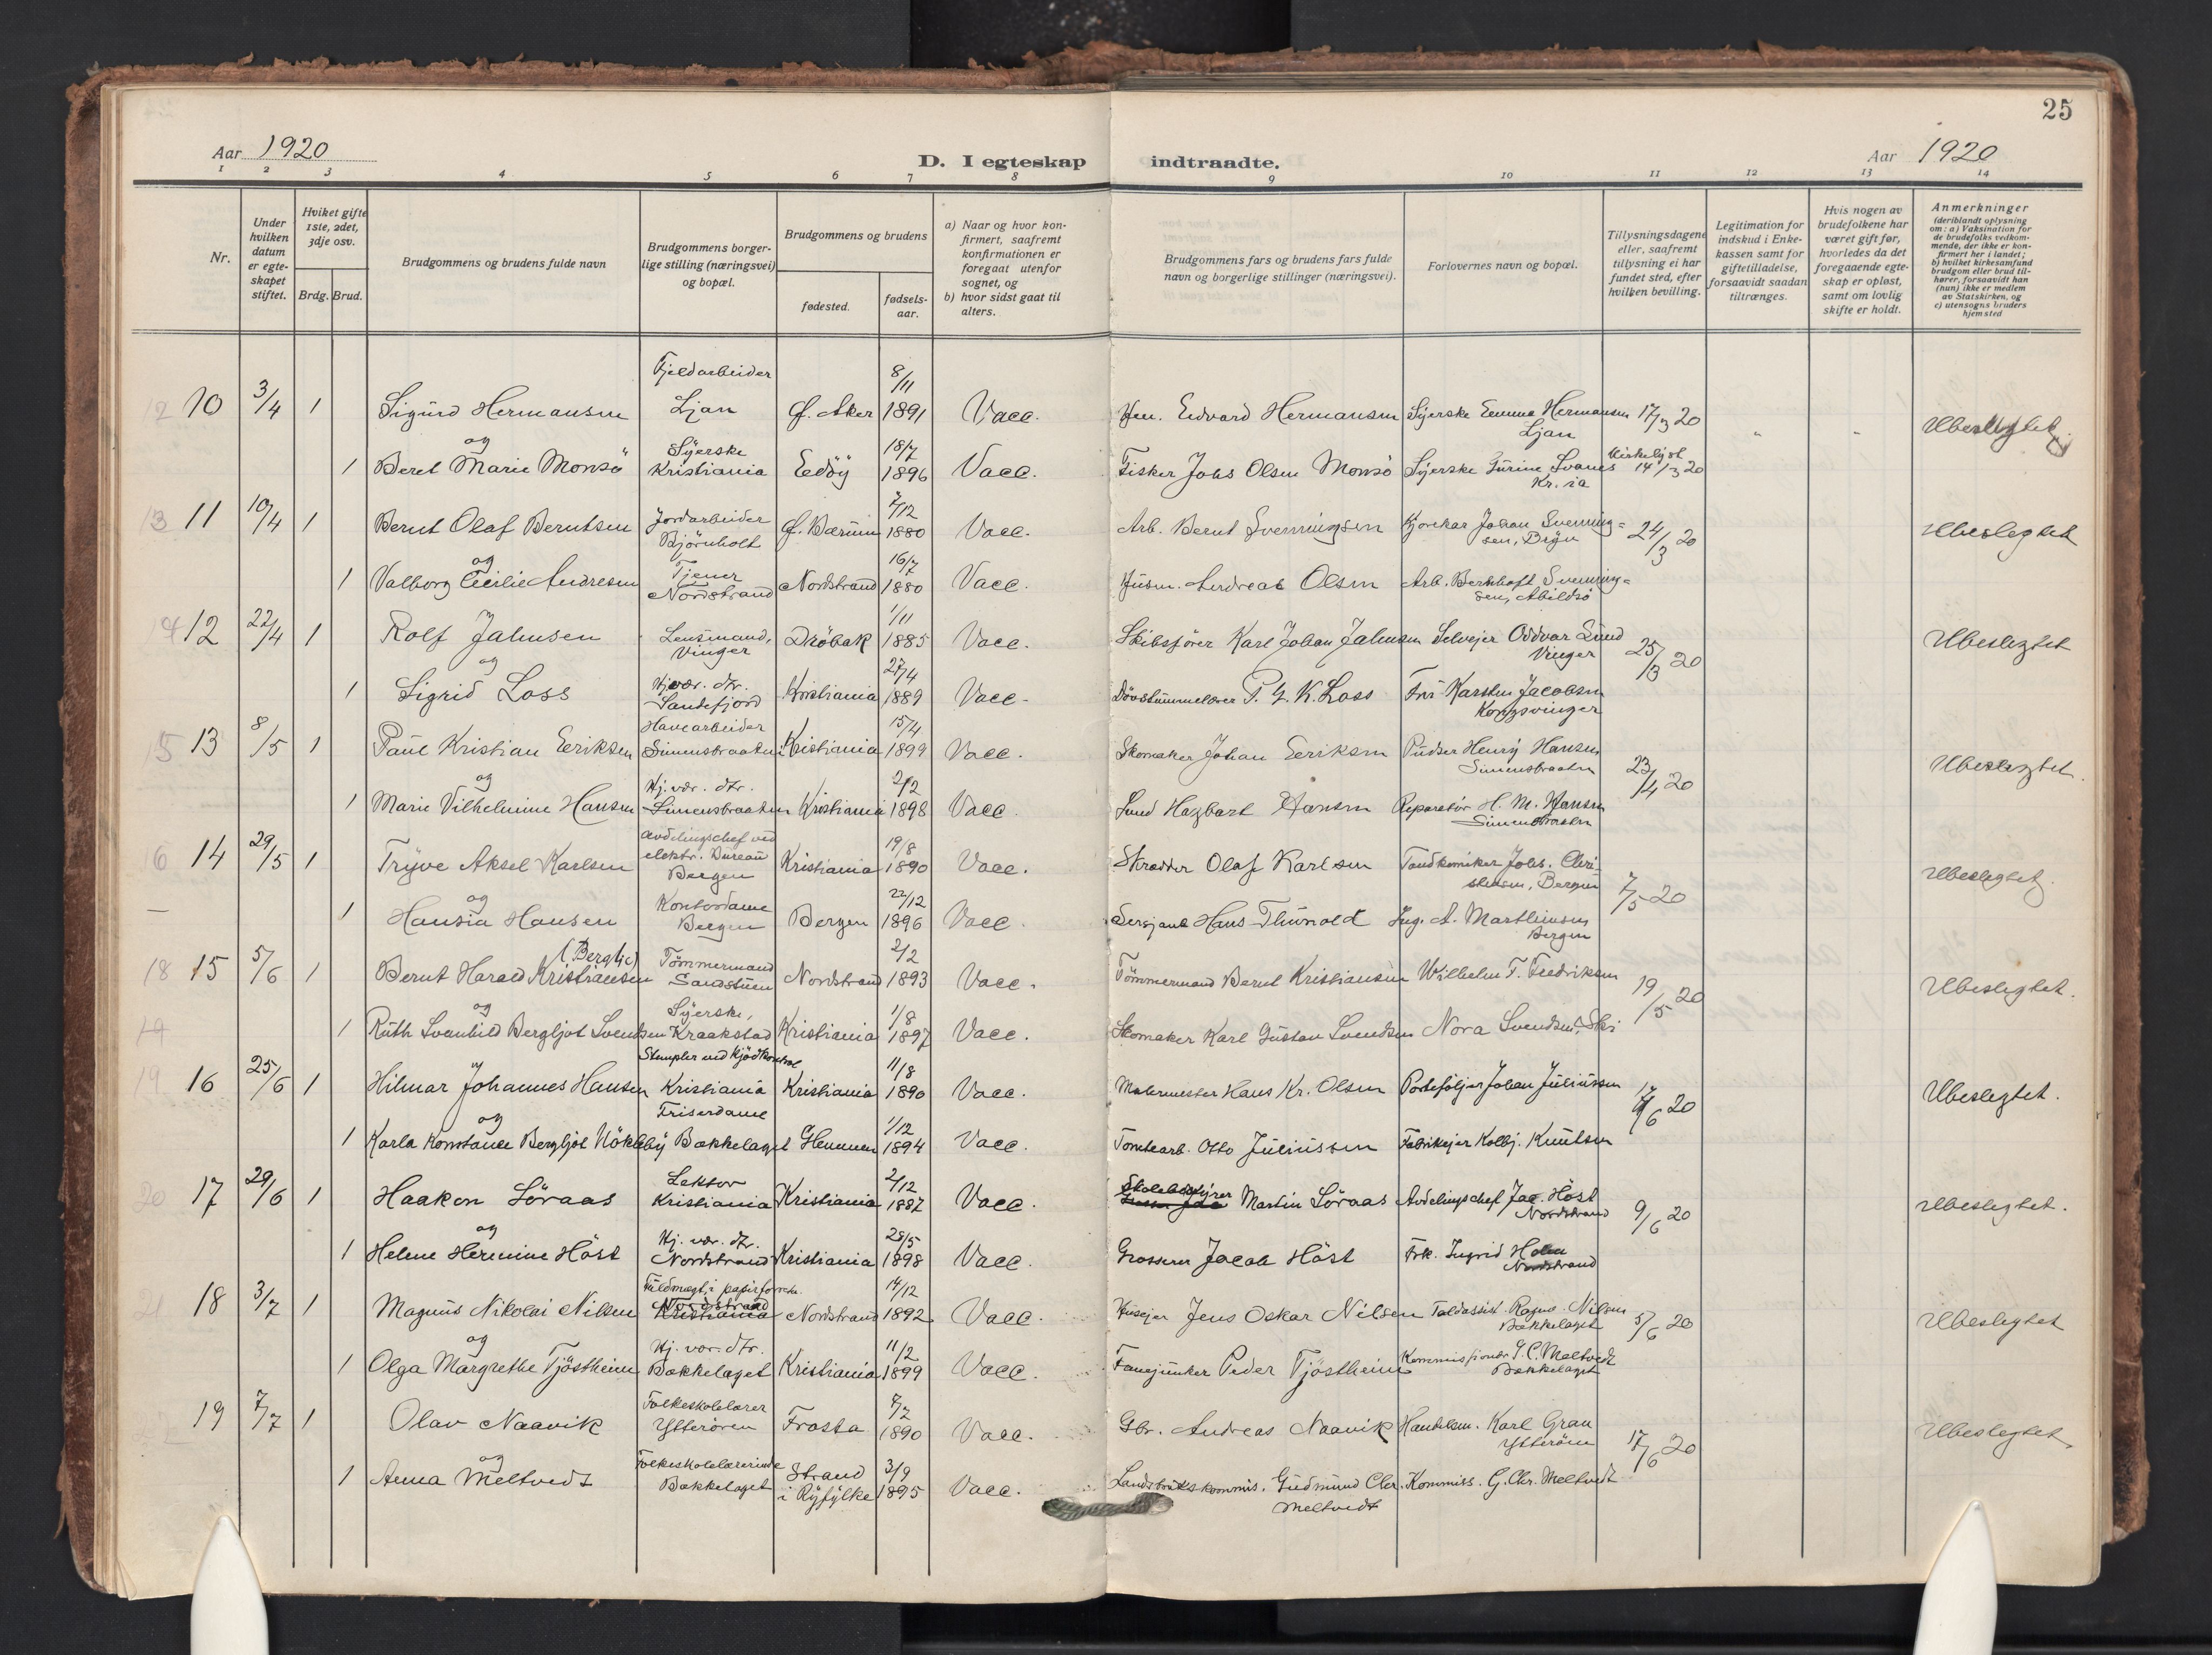 25
Aar 1920
D. I egteskap indtraadte.
Aar 1920
1 2 3 4 5 6 7 8 9 10 11 12 13 14
Nr.
Under hvilken datum er egteskapet stiftet.
Hviket gifte 1ste, 2det, 3dje osv.
Brdg. Brud.
Brudgommens og brudens fulde navn
Brudgommens borgerlige stilling (næringsvei) og bopæl.
Brudgommens og brudens
fødested.
fødselsaar.
a) Naar og hvor konfirmert, saafremt konfirmationen er foregaat utenfor sognet, og
b) hvor sidst gaat til alters.
Brudgommens fars og brudens fars fulde navn og borgerlige stillinger (næringsvei).
Forlovernes navn og bopæl.
Tillysningsdagene eller, saafremt tillysning ei har fundet sted, efter hvilken bevilling.
Legitimation for indskud i Enkekassen samt for giftetilladelse, forsaavidt saadan tiltrænges.
Hvis nogen av brudefolkene har været gift før, hvorledes da det foregaaende egteskap er opløst, samt om lovlig skifte er holdt.
Anmerkninger
(deriblandt oplysning om: a) Vaksination for de brudefolks vedkommende, der ikke er konfirmert her i landet; b) hvilket kirkesamfund brudgom eller brud tilhører, forsaavidt han (hun) ikke er medlem av Statskirken, og c) utensogns bruders hjemsted
Fjeldarbeider 8/11
12 10 3/4 1 Sigurd Hermansen Ljan f. Aker 1891 Vacc. Edvard Hermansen Syerske Emma Hermansen Ljan 17/3 20 Ubeslegtet
og
1 Beret Marie Monsö Syerske Kristiania Edöy 18/7 1896 Vacc. Fisker Johs Olsen Monsö Syerske Gurine Svanes Kr.ia 14/3 20
13 11 10/4 1 Bernt Olaf Berntsen Jordarbeider Björnholt f. Bærum 7/12 1880 Vacc. Arb. Bernt Svenningsen Johan Svenningsen, Bryn 24/3 20 Ubeslegtet
og
1 Valborg Cecilie Andresen Tjener Nordstrand Nordstrand 16/7 1880 Vacc. Husm. Andreas Olsen Arb. Svenningsen, Abildsö
14 12 22/4 1 Rolf Jahnsen Lensmand, Vinger Dröbak 1/11 1885 Vacc. Skibsförer Karl Johan Jahnsen Selveier Oddvar Lund Vinger 25/3 20 Ubeslegtet
og
1 Sigrid Loss Hj.vær. dtr. Sandefjord Kristiania 27/4 1889 Vacc. Dövstummelærer P. K. Loss Fru Karsten Jacobsen Kongsvinger
15 13 8/5 1 Paul Kristian Eeriksen Havearbeider Simensbraaten Kristiania 15/4 1899 Vacc. Skomaker Johan Eeriksen Pudser Henry Hansen Simensbraaten 23/4 20 Ubeslegtet.
og
1 Marie Vilhelmine Hansen Hj.vær. dtr. Simensbraaten Kristiania 2/2 1898 Vacc. Hagbart Hansen Reparatör H. M. Hansen Simensbraaten
16 14 29/5 1 Trÿve Aksel Karlsen avdelingschef ved elektr. Bureau Bergen Kristiania 19/8 1890 Vacc. Skrædder Olaf Karlsen Tandtekniker Johs. Christensen, Bergen 7/5 20 Ubeslegtet.
og
1 Hansia Hansen Kontordame Bergen Bergen 22/12 1896 Vacc. Sersjant Hans Thunold Ing. A. Marthinsen Bergen
(Berglie)
18 15 5/6 1 Bernt Harald Kristiansen Tömmermand Sandstuen Nordstrand 2/2 1893 Vacc. Tömmermand Bernt Kristiansen Wilhelm T. Fredriksen 19/5 20 Ubeslegtet.
og
1 Ruth Svanhild Bergljot Svendsen Syerske, Kraakstad Kristiania 1/8 1897 Vacc. Skomaker Karl Gustav Svendsen Nora Svendsen, Ski
19 16 25/6 1 Hilmar Johannes Hansen Stempler ved Kjödkontrol Kristiania Kristiania 11/8 1890 Vacc. Malermester Hans Kr. Olsen Portefölje Johan Juliussen 20 Ubeslegtet.
og
1 Karla Konstance Bergljot Nökleby Friserdame Bækkelaget Hemnes 1/12 1894 Vacc. Tomtearb. Otto Juliussen Fabrikeier Kolbj. Knutsen
20 17 29/6 1 Haakon Söraas Lektor Kristiania Kristiania 2/12 1887 Vacc. Skolebestyrer Martin Söraas Avdelingschef Jac. Höst Nordstrand 9/6 20 Ubeslegtet.
og
1 Helene Hermine Höst Hj. vær. dtr. Nordstrand Kristiania 28/5 1898 Vacc. Grosserer Jacob Höst Frk. Ingrid Holm Nordstrand
21 18 3/7 1 Magnus Nikolai Nilsen Fuldmægt. i papirforretn. Nordstrand Kristiania Nordstrand 14/12 1892 Vacc. Huseier Jens Oskar Nilsen Toldassist. Ragnv. Nilsen Bækkelaget 5/6 20 Ubeslegtet
og
1 Olga Margrethe Tjöstheim Hj. vær. dtr. Bækkelaget Kristiania 11/2 1899 Vacc. Fanejunker Peder Tjöstheim Kommissionær G. C. Meltvedt Bækkelaget
19 7/7 1 Olav Naavik Folkeskolelærer Ytterøren Frosta 7/2 1890 Vacc. Gbr. Andreas Naavik Handelsm. Karl Grav Ytterøen 17/6 20 Ubeslegtet
og
1 Anna Meltvedt Folkeskolelærerinde Bækkelaget Strand i Ryfylke 3/9 1895 Vacc. Landbrukskommis. Gudmund Chr. Meltvedt Kommiss. G. Chr. Meltvedt